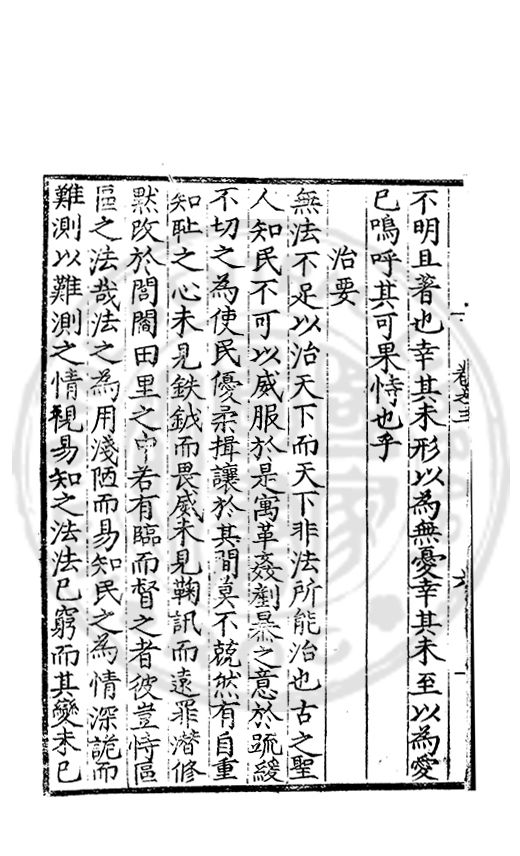 不明且著也幸其未形以為無憂幸其未至以為愛
已嗚呼其可果恃也乎
治要
無法不足以治天下而天下非法所能治也古之聖
人知民不可以威服於是寓革姦剷暴之意於疏緩
不切之為使民優柔揖讓於其間莫不兢然有自重
知耻之心未見鈇鉞而畏威未見鞠訊而遠罪潛修
默改於閭閻田里之中若有臨而督之者彼豈恃區
區之法哉法之為用淺陋而易知民之為情深詭而
難測以難測之情視易知之法法已窮而其變未已
卷之三
六